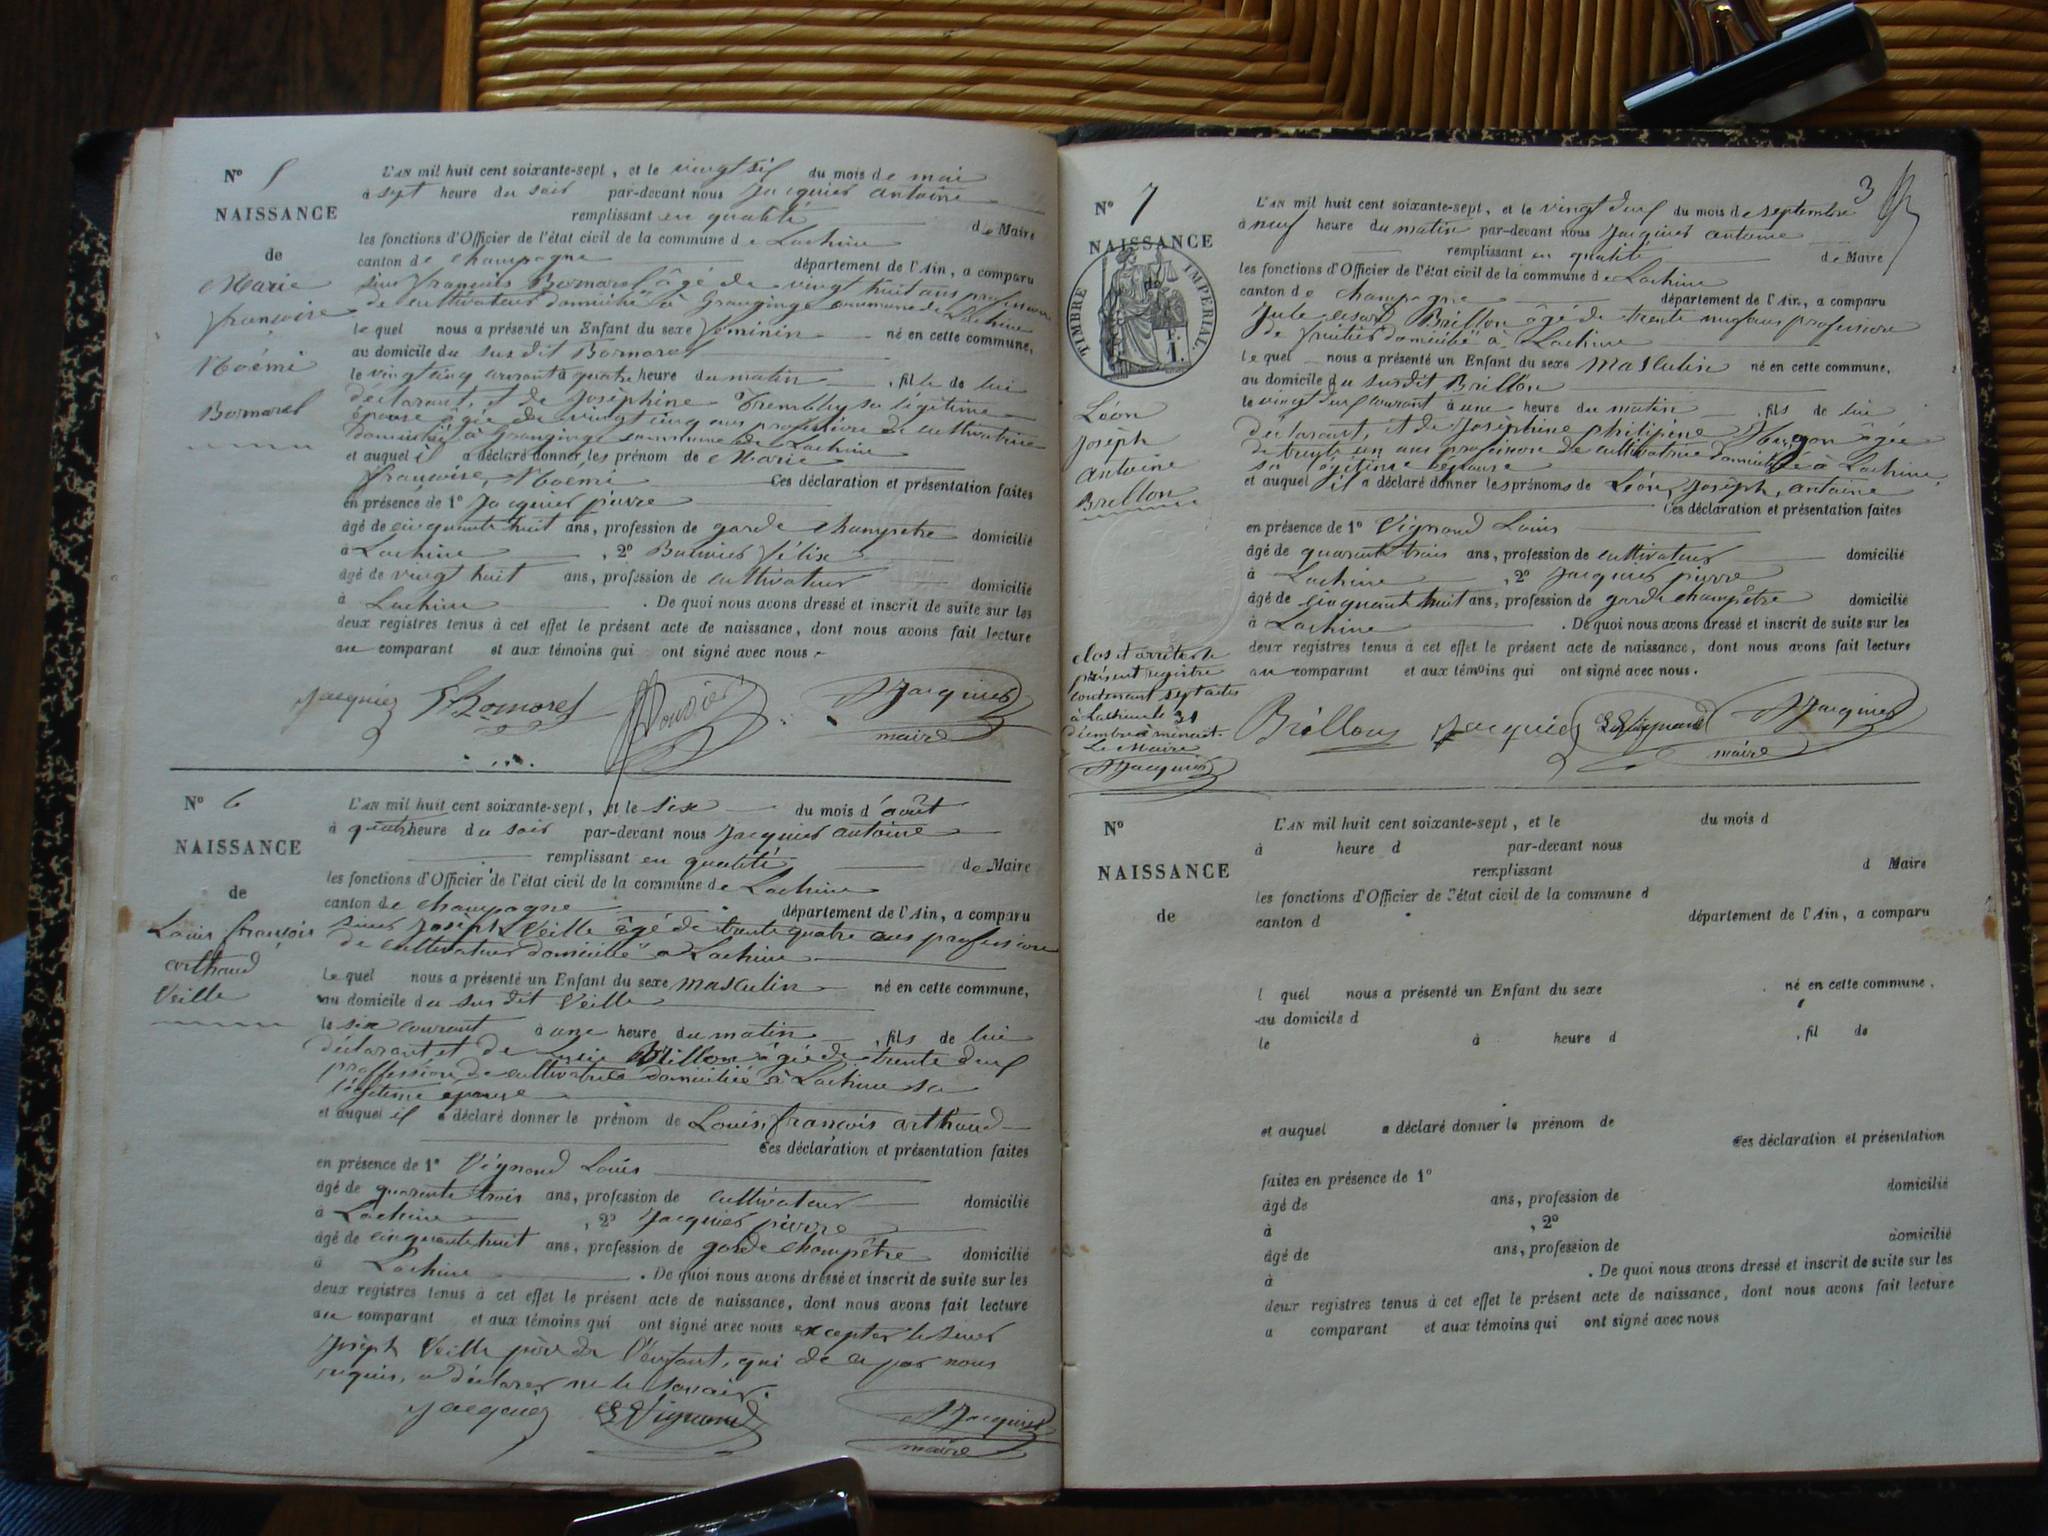 N° 5
NAISSANCE
de
Marie
françoise
Noémi
Bornarel
L'AN mil huit cent soixante-sept, et le vingt six du mois de mai
à sept heure du soir par-devant nous Jacquier antoine
remplissant en qualité de Maire
les fonctions d'Officier de l'état civil de la commune de Lachine
canton de champagne département de l'Ain, a comparu
sieur françois Bornarel âgé de vingt huit ans profession
de cultivateur domicilié à Granginge commune de Lachine
le quel nous a présenté un Enfant du sexe féminin né en cette commune,
au domicile du sus dit Bornarel
le vingt cinq courant à quatre heure du matin, fille de lui
déclarant, et de Joséphine Tremblay sa légitime
épouse âgée de vingt cinq ans profession de cultivatrice
domiciliée à Granginge commune de Lachine
et auquel il a déclaré donner les prénom de Marie
françoise, Noémi Ces déclaration et présentation faites
en présence de 1° Jacquier pierre
âgé de cinquante huit ans, profession de garde champetre domicilié
à Lachine, 2° Bouvier félix
âgé de vingt huit ans, profession de cultivateur domicilié
à Lachine. De quoi nous avons dressé et inscrit de suite sur les
deux registres tenus à cet effet le présent acte de naissance, dont nous avons fait lecture
au comparant et aux témoins qui ont signé avec nous
Jacquier F. Bornarel Bouvier A Jacquier
maire
N° 6
NAISSANCE
de
Louis françois
arthaud
Veille
L'AN mil huit cent soixante-sept, et le six du mois d'août
à quatre heure du soir par-devant nous Jacquier antoine
remplissant en qualité de Maire
les fonctions d'Officier de l'état civil de la commune de Lachine
canton de champagne département de l'Ain, a comparu
sieur Joseph Veille âgé de trente quatre ans profession
de cultivateur domicilié à Lachine
le quel nous a présenté un Enfant du sexe masculin né en cette commune,
au domicile du sus dit Veille
le six courant à une heure du matin, fils de lui
déclarant et de Brillon âgée de trente deux
profession de cultivatrice domiciliée à Lachine sa
légitime épouse
et auquel il a déclaré donner le prénom de Louis, françois arthaud
Ces déclaration et présentation faites
en présence de 1° Vignand Louis
âgé de quarente trois ans, profession de cultivateur domicilié
à Lachine, 2° Jacquier pierre
âgé de cinquante huit ans, profession de garde champêtre domicilié
à Lachine. De quoi nous avons dressé et inscrit de suite sur les
deux registres tenus à cet effet le présent acte de naissance, dont nous avons fait lecture
au comparant et aux témoins qui ont signé avec nous excepter le sieur
Joseph Veille père de l'enfant, qui de ce par nous
requis, a déclarer ne le savoir.
Jacquier L Vignand A Jacquier
maire
3
N° 7
NAISSANCE
de
TIMBRE IMPERIAL
1.
Léon
Joseph
antoine
Brillon
L'AN mil huit cent soixante-sept, et le vingt deux du mois de septembre
à neuf heure du matin par-devant nous Jacquier antoine
remplissant en qualité de Maire
les fonctions d'Officier de l'état civil de la commune de Lachine
canton de champagne département de l'Ain, a comparu
Jule césar Brillon âgé de trente neuf ans profession
de fruitier domicilié à Lachine
le quel nous a présenté un Enfant du sexe masculin né en cette commune,
au domicile du susdit Brillon
le vingt deux courant à une heure du matin, fils de lui
déclarant, et de Joséphine philipine Hugon âgée
de trente un ans profession de cultivatrice domiciliée à Lachine
sa légitime épouse
et auquel il a déclaré donner les prénoms de Léon, Joseph, antoine
Ces déclaration et présentation faites
en présence de 1° Vignand Louis
âgé de quarente trois ans, profession de cultivateur domicilié
à Lachine, 2° Jacquier pierre
âgé de cinquante huit ans, profession de garde champêtre domicilié
à Lachine. De quoi nous avons dressé et inscrit de suite sur les
deux registres tenus à cet effet le présent acte de naissance, dont nous avons fait lecture
au comparant et aux témoins qui ont signé avec nous.
Brillon Jacquier L Vignand A Jacquier
maire
clos et arrêté le
présent registre
contenant sept actes
à Lachine le 31
décembre à minuit.
Le Maire
A Jacquier
N°
NAISSANCE
de
L'AN mil huit cent soixante-sept, et le du mois d
à heure d par-devant nous
remplissant d Maire
les fonctions d'Officier de l'état civil de la commune d
canton d département de l'Ain, a comparu
l quel nous a présenté un Enfant du sexe né en cette commune,
au domicile d
le à heure d, fil de
et auquel a déclaré donner le prénom de
Ces déclaration et présentation
faites en présence de 1°
âgé de ans, profession de domicilié
à, 2°
âgé de ans, profession de domicilié
à. De quoi nous avons dressé et inscrit de suite sur les
deux registres tenus à cet effet le présent acte de naissance, dont nous avons fait lecture
a comparant et aux témoins qui ont signé avec nous